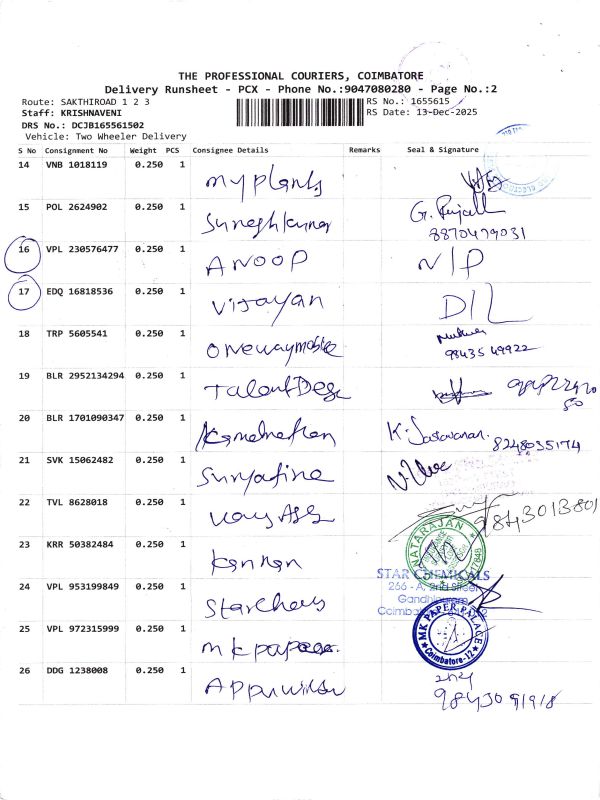 THE PROFESSIONAL COURIERS, COIMBATORE
Delivery Runsheet - PCX - Phone No.:9047080280 - Page No.:2
Route: SAKTHIROAD 1 2 3
RS No.: 1655615
Staff: KRISHNAVENI
RS Date: 13-Dec-2025
DRS No.: DCJB165561502
Vehicle: Two Wheeler Delivery
S No Consignment No Weight PCS Consignee Details Remarks Seal & Signature
14 VNB 1018119 0.250 1 my plants
15 POL 2624902 0.250 1 Sureshkumar G.
8870479031
16 VPL 230576477 0.250 1 ANOOP N/P
17 EDQ 16818536 0.250 1 Vijayan D/L
18 TRP 5605541 0.250 1 onewaymobile
98435 49922
19 BLR 2952134294 0.250 1 TalentDesc
50
20 BLR 1701090347 0.250 1 K. Saravanan.
8248035174
21 SVK 15062482 0.250 1 Suryafine
22 TVL 8628018 0.250 1
9843013801
NATARAJAN
23 KRR 50382484 0.250 1 Kannan
STAR CHEMICALS
266 - A, 2nd Street
24 VPL 953199849 0.250 1 Starchem
25 VPL 972315999 0.250 1 mk paper
MK PAPER PALACE
Coimbatore-12
26 DDG 1238008 0.250 1